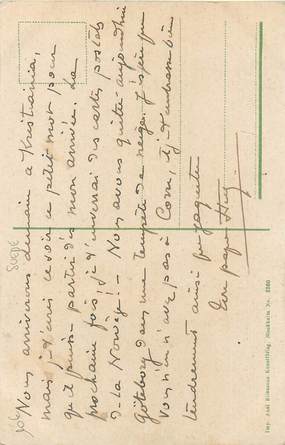 Nous arriverons demain à Kristiania,
mais j'écris ce soir ce petit mot pour
qu'il puisse partir dès mon arrivée. La
prochaine fois je t'enverrai des cartes postales
de la Norwège! – Nous avons quitté aujourd'hui
Göteborg dans une tempête de neige. J'espère que
vous n'en n'avez pas à
tendrement ainsi que
Ton papa
SUEDE
Imp. Axel Eliassons Konstförlag, Stockholm No.